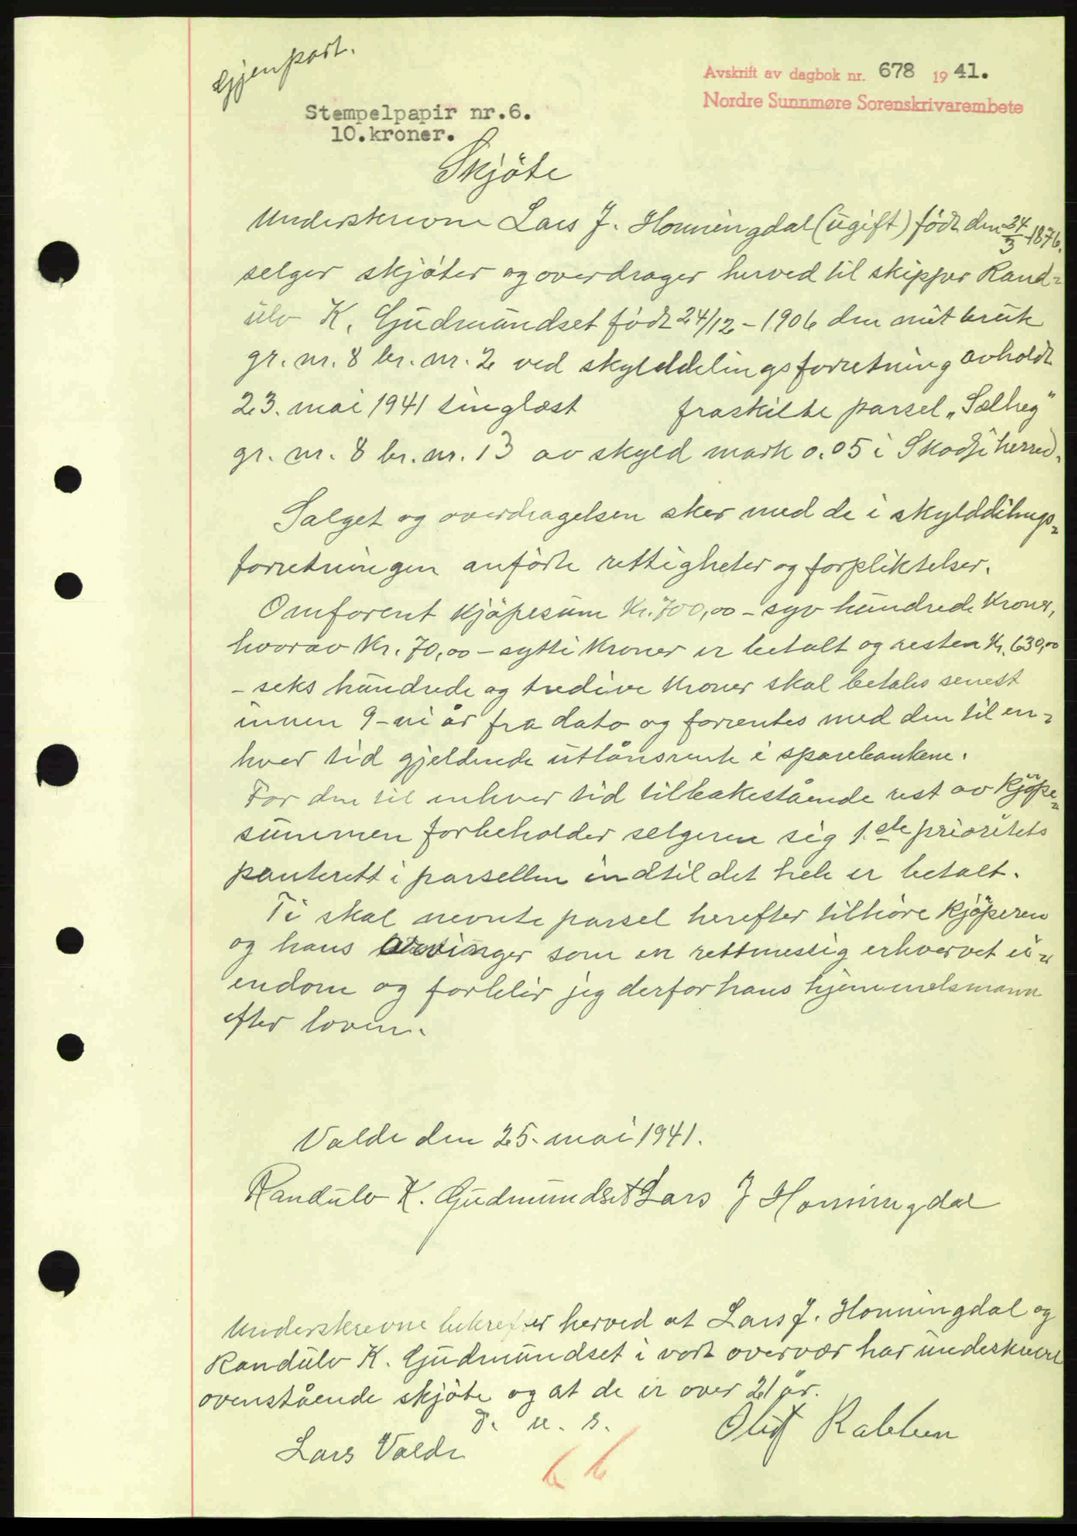 Gjenpart.
Avskrift av dagbok nr. 678 1941.
Nordre Sunnmøre Sorenskrivarembete
Stempelpapir nr.6.
10.kroner.
Skjöte
Underskrevne Lars J. Honningdal (ugift) født den 24/3 1876.
selger skjöter og overdrager herved til skipper Rand=
ulv K. Gudmundset født 24/12-1906 den mit bruk
gr. nr. 8 br. nr. 2 ved skylddelingsforretning avholdt
23. mai 1941 tinglæst fraskilte parsel „Sælheg"
gr. nr. 8 br. nr. 13 av skyld mark 0.05 i Skodje herred.
Salget og overdragelsen sker med de i skylddelings=
forretningen anførte rettigheter og forpliktelser.
Omforent kjöpesum Kr. 700,00 - syv hundrede kroner,
hvorav Kr. 70,00 - sytti kroner er betalt og resten Kr. 630,00
- seks hundrede og tredive kroner skal betales senest
innen 9 - ni år fra dato og forrentes med den til en=
hver tid gjeldende utlånsrente i sparebankene.
For den til enhver tid tilbakestående rest av kjöpe=
summen forbeholder selgeren sig 1.ste prioritets
panterett i parsellen indtil det hele er betalt.
Ti skal nevnte parsel herefter tilhøre kjöperen
og hans arvinger som en rettmessig erhvervet ei=
endom og forblir jeg derfor hans hjemmelsmann
efter loven.
Valde den 25. mai 1941.
Randulv K. Gudmundset Lars J Honningdal
Underskrevne bekrefter herved at Lars J. Honningdal og
Randulv K. Gudmundset i vort overvær har underskrevet
ovenstående skjöte og at de er over 21 år.
D. u. s.
Lars Valde Oluf Rabben